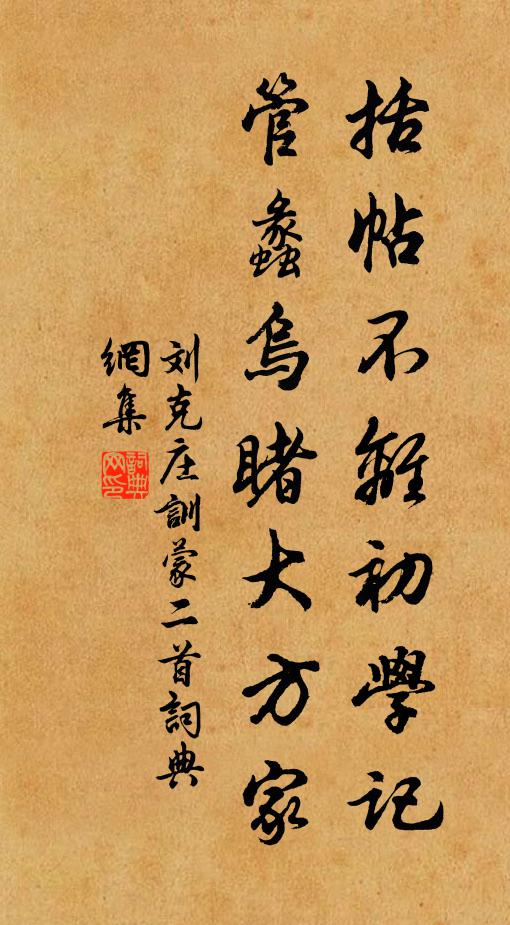 括帖不離初學記
管蠡烏睹大方家
刘克庄訓蒙二首詞典
網集
詞典网印